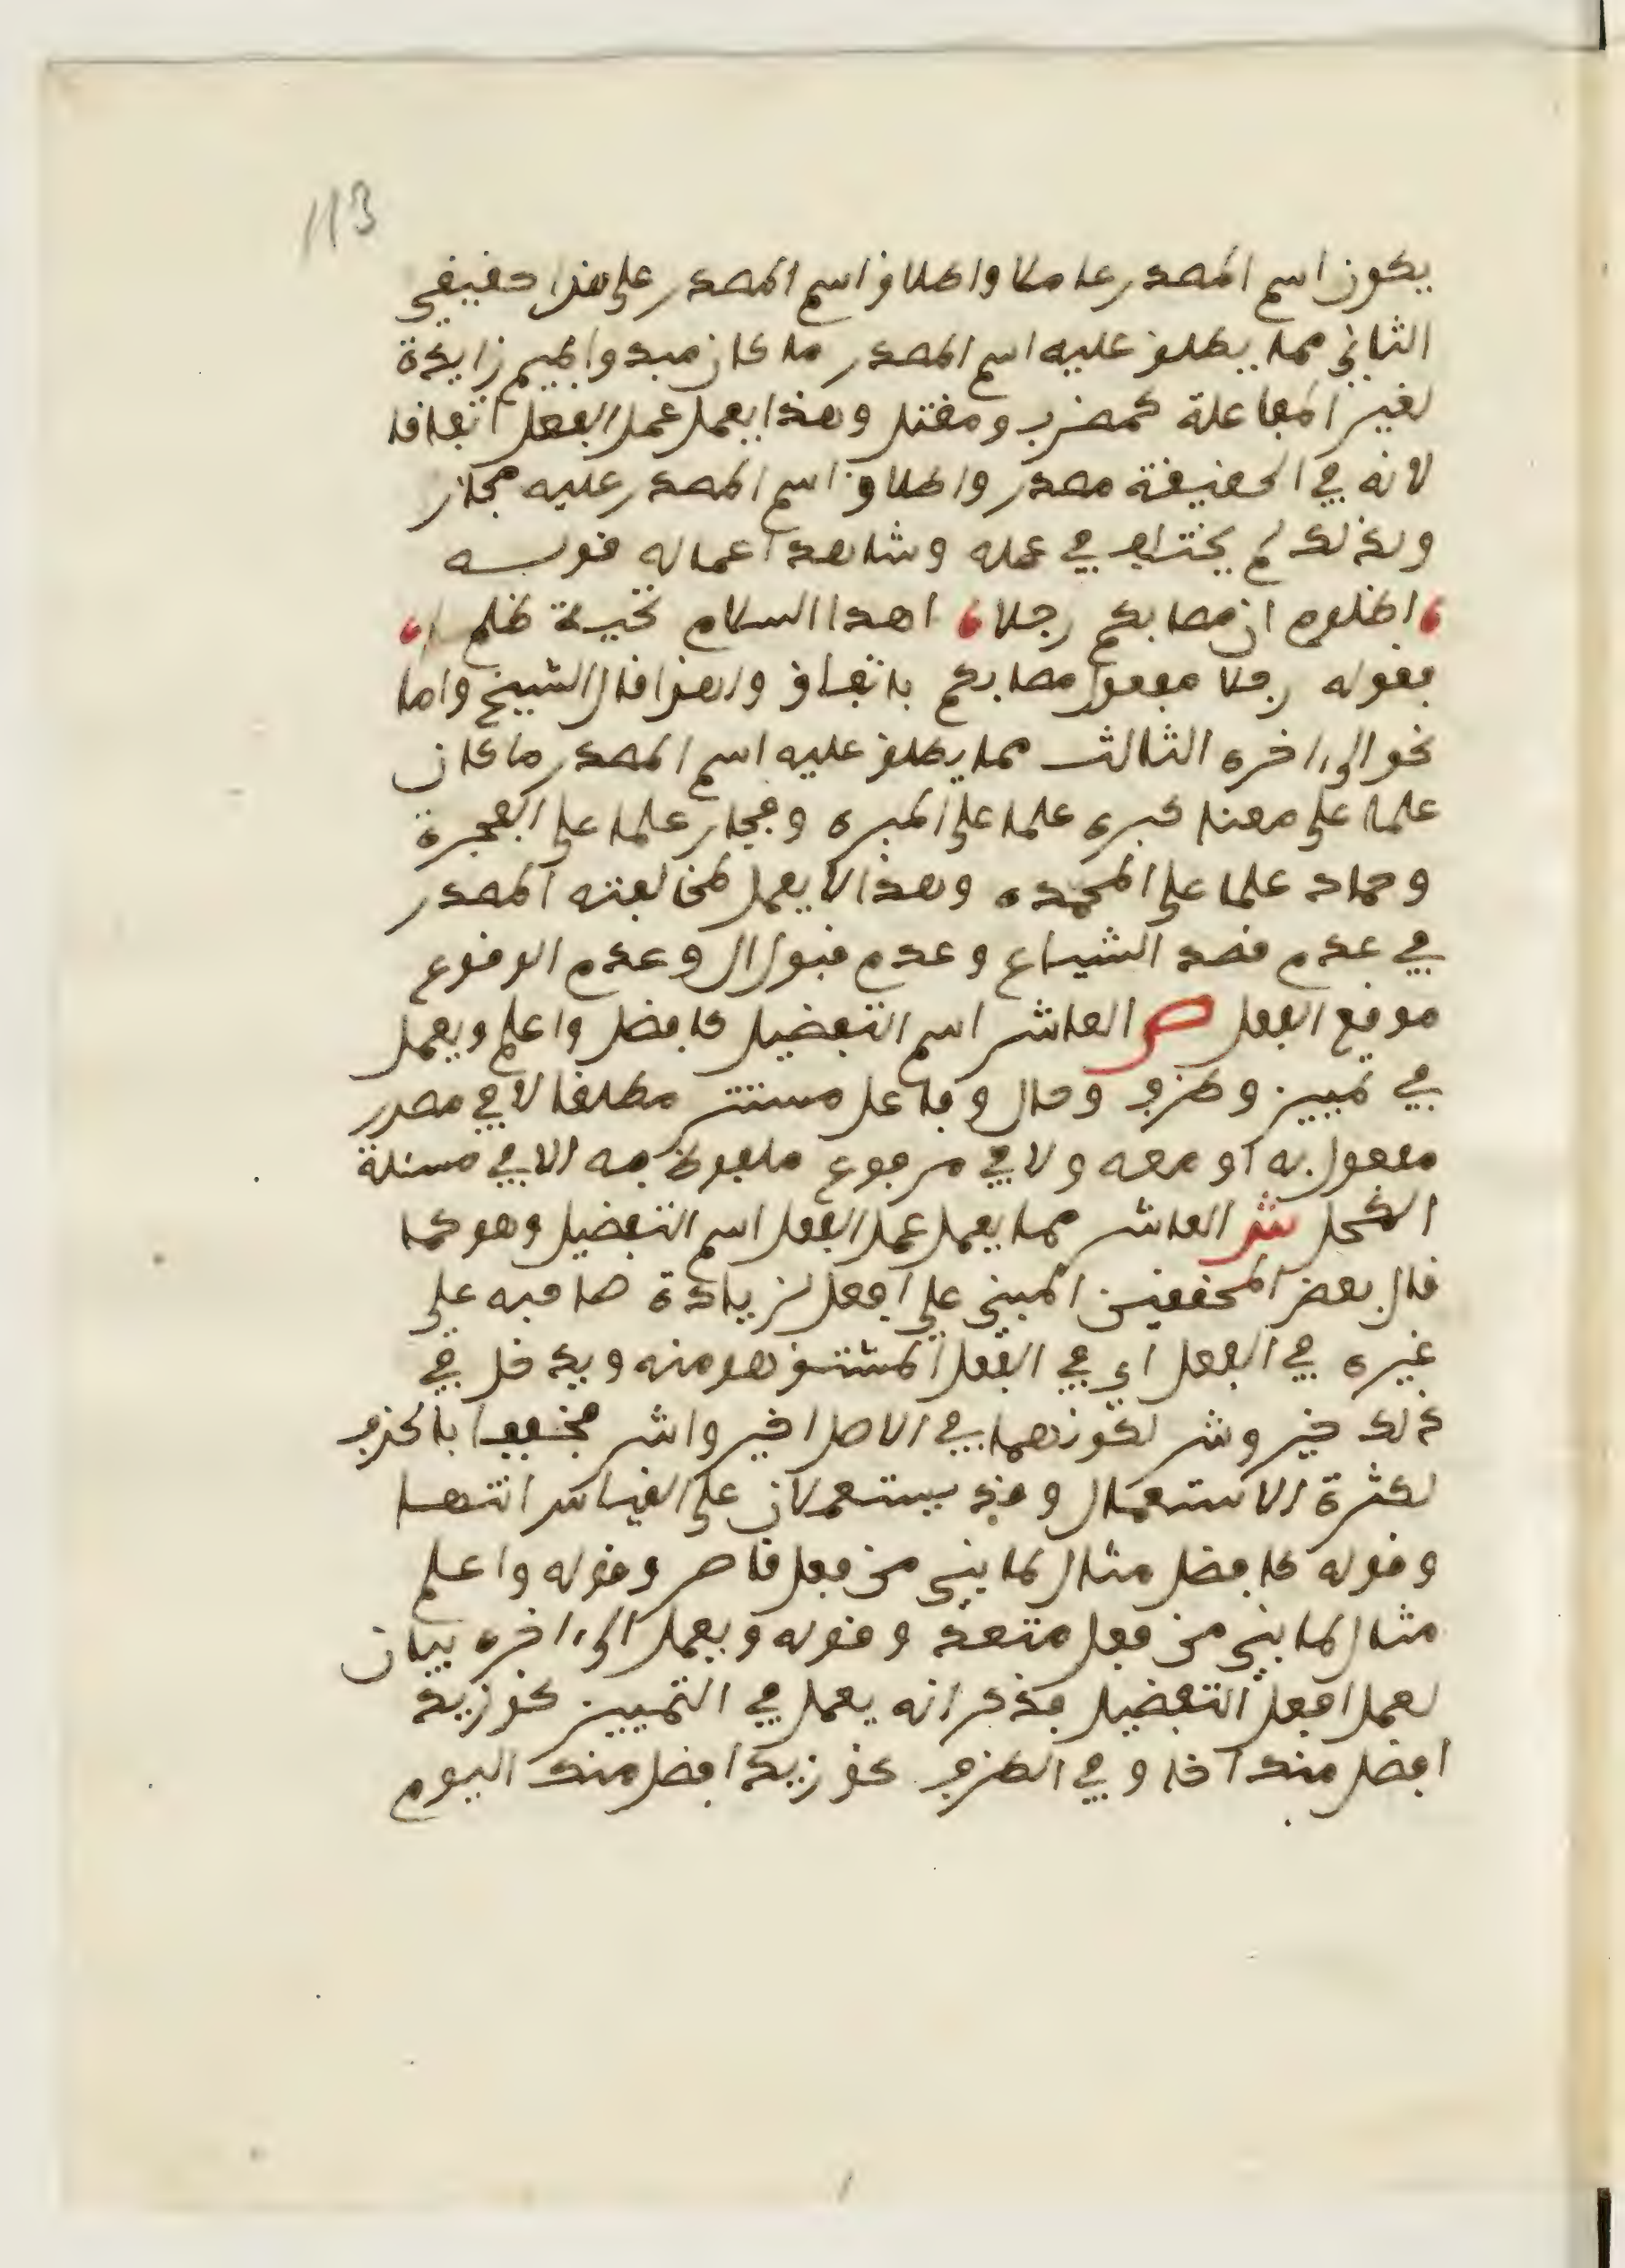 113
يكون اسم المصدر عاملا واطلاق اسم المصدر على هذا حقيقي
الثاني مما يطلق عليه اسم المصدر ما كان مبدوا بميم زايدة
لغير المفاعلة كمضرب ومقتل وهذا يعمل عمل الفعل اتفاقا
لانه في الحقيقة مصدر واطلاق اسم المصدر عليه مجاز
ولذلك لم يختلف في عمله وشاهد اعماله قوله
اظلوم ان مصابكم رجلا اهدا السلام تحية ظلم
فقوله رجلا مفعول مصابكم باتفاق ولهذا قال الشيخ واما
نحو الى اخره الثالث مما يطلق عليه اسم المصدر ما كان
علما على معنا كبره علما على المبره وفجار علما على الفجرة
وحماد علما على المحمده وهذا لا يعمل لمخالفته المصدر
في عدم قصد الشياع وعدم قبول ال وعدم الوقوع
موقع الفعل ص العاشر اسم التفضيل كافضل واعلم ويعمل
في تمييز وظرف وحال وفاعل مستتر مطلقا لا في مصدر
مفعول به او معه ولا في مرفوع ملفوظ به الا في مسئلة
الكحل ش العاشر مما يعمل عمل الفعل اسم التفضيل وهو كما
قال بعض المحققين المبني على افعل لزيادة صاحبه على
غيره في الفعل اي في الفعل المشتق هو منه ويدخل في
ذلك خير وشر لكونهما في الاصل اخير واشر مخففا بالحذف
لكثرة الاستعمال وقد يستعملان على القياس انتها
وقوله كافضل مثال لما بني من فعل قاصر وقوله واعلم
مثال لما بني من فعل متعد وقوله ويعمل الى اخره بيان
لعمل افعل التفضيل فذكر انه يعمل في التمييز نحو زيد
افضل منك اخا وفي الظرف نحو زيد افضل منك اليوم